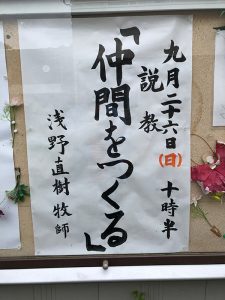 九月二十六日(日) 十時半
説教
「仲間をつくる」
浅野直樹牧師